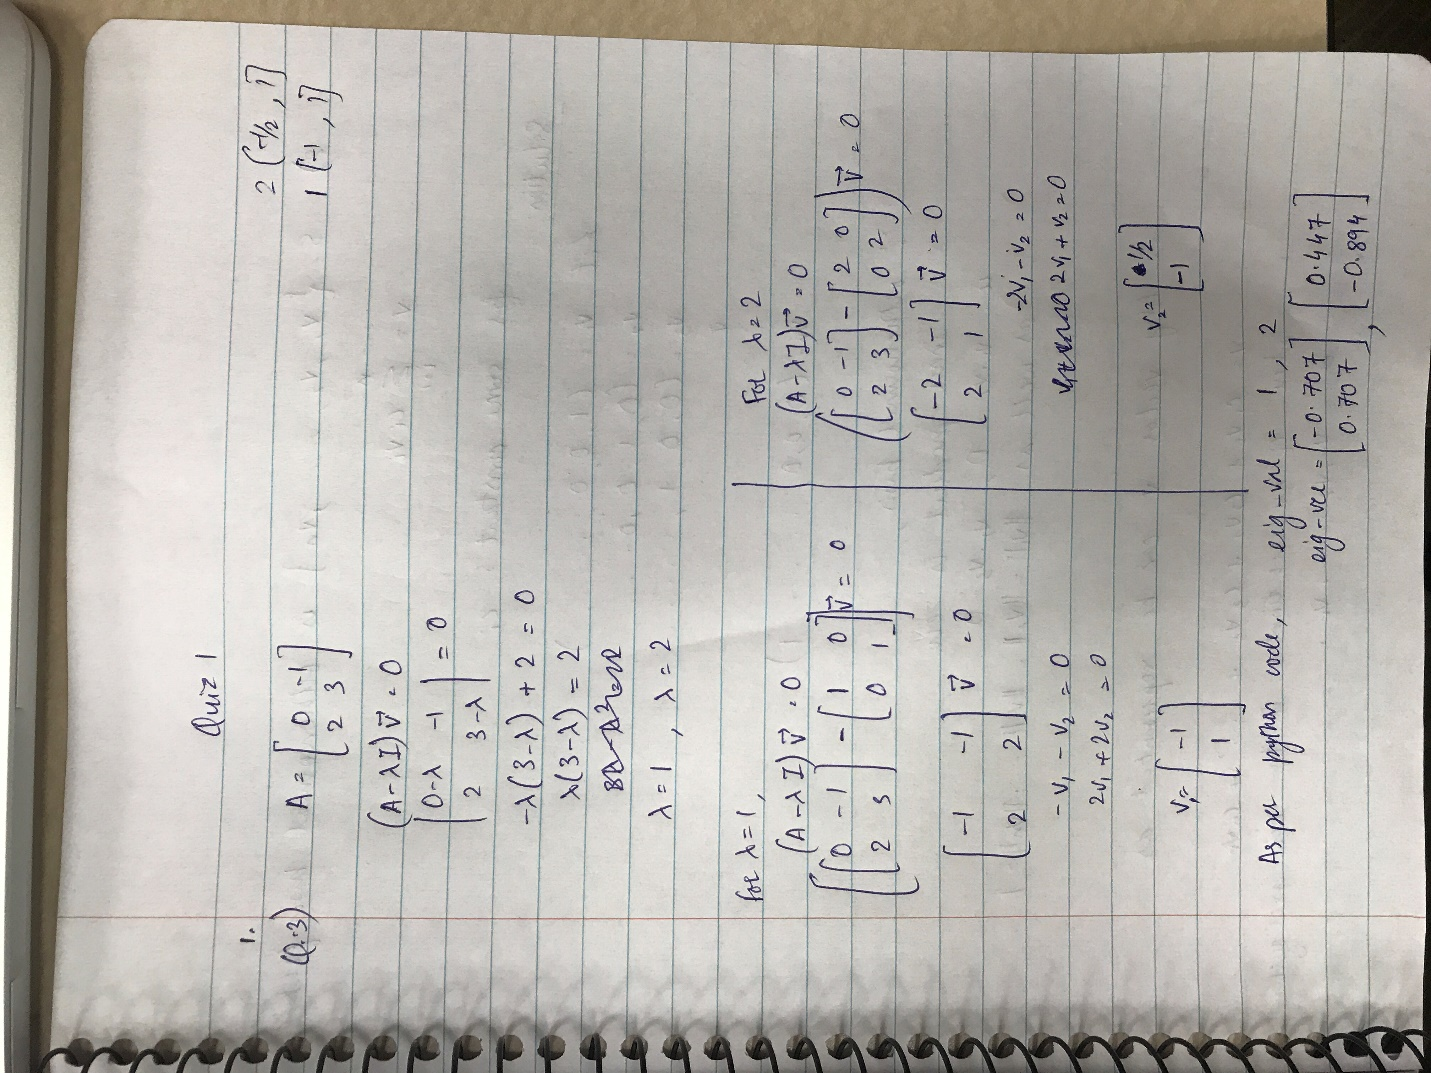 Quiz 1
1. 2 [-1/2, 1]
Q.3) A = [0 -1
2 3] 1 [-1, 1]
(A-λI)v⃗ = 0
|0-λ -1
2 3-λ| = 0
-λ(3-λ) + 2 = 0
λ(3-λ) = 2
λ = 1, λ = 2
for λ=1,
(A-λI)v⃗ = 0
[[0 -1
2 3] - [1 0
0 1]] v⃗ = 0
[-1 -1
2 2] v⃗ = 0
-v₁ - v₂ = 0
2v₁ + 2v₂ = 0
v₁ = [-1
1]
For λ=2
(A-λI)v⃗ = 0
([0 -1
2 3] - [2 0
0 2]) v⃗ = 0
[-2 -1
2 1] v⃗ = 0
-2v₁ - v₂ = 0
2v₁ + v₂ = 0
v₂ = [1/2
-1]
As per python code, eig-val = 1, 2
eig-vec = [-0.707
0.707], [0.447
-0.894]